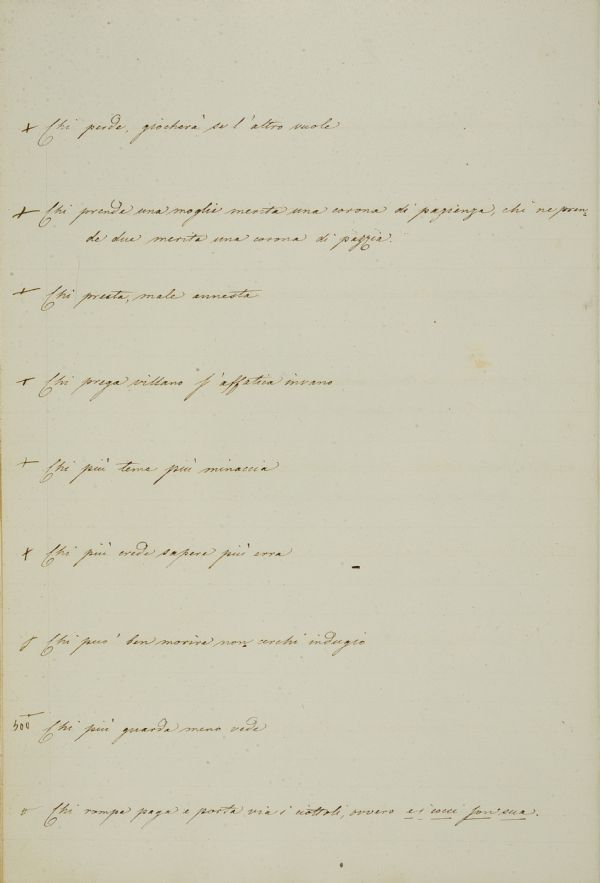 + Chi perde, giocherà se l'altro vuole
+ Chi prende una moglie merita una corona di pazienza, chi ne pren-
de due merita una corona di pazzia.
+ Chi presta, male annesta
+ Chi prega villano s'affatica invano
+ Chi più teme più minaccia
+ Chi più crede sapere più erra
Chi può ben morire non cerchi indugio
500 Chi più guarda meno vede
Chi rompe paga e porta via i cottoli, ovvero e i cocci son sua.